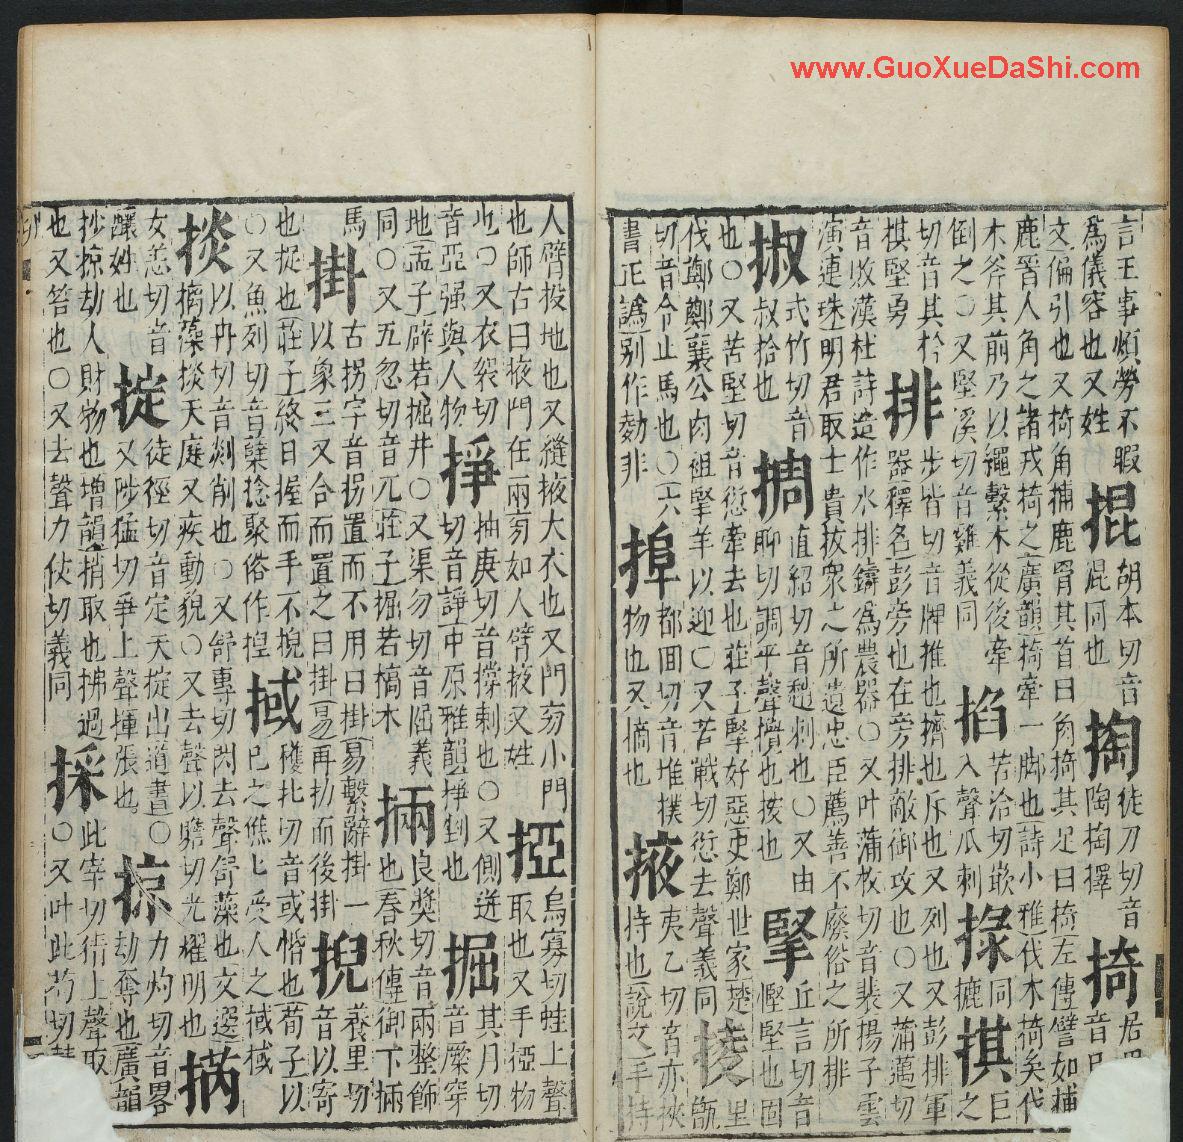 www.GuoXueDaShi.com
言王事煩勞不暇 掍 胡本切音混同也 掏 徒刀切音陶掏擇 掎 居
爲儀容也又姓
文偏引也又掎角捕鹿胷其首曰角掎其足曰掎左傳譬如捕
鹿晉人角之諸戎掎之廣韻掎牽一脚也詩小雅伐木掎矣伐
木斧其前乃以繩繫木從後牽 掐 苦洽切嵌入聲爪刺 掾 同摭 掑 巨
倒之○又堅溪切音雞義同
切音其枔 排 步皆切音牌推也擠也斥也又列也又彭排軍
棋堅勇 器釋名彭旁也在旁排敵御攻也○又蒲萬切
音敗漢杜詩造作水排鑄爲農器○又叶蒲枚切音裴揚子雲
演連珠明君取士貴拔衆之所遺忠臣薦善不廢俗之所排
掓 式竹切音叔拾也 掆 直紹切音 刺也○又由聊切調平聲 也按也 掔 丘言切音慳堅也固
也○又苦堅切音愆牽去也莊子掔好惡史鄭世家楚 里
伐鄭鄭襄公肉袒掔羊以迎○又苦戰切愆去聲義同 掕
切音令止馬也○六書正譌别作 非 掉 都回切音堆撲物也又摘也 掖 夷乙切音亦挾持也說文手持
人臂投地也又縫掖大衣也又門旁小門 掗 烏寡切蛙上聲
也師古曰掖門在兩旁如人臂掖又姓 取也又手掗物
也○又衣 切音亞强與人物 掙 抽庚切音撐刺也○又側迸切音諍中原雅韻掙 也 掘 其月切音 穿
地孟子辟若掘井○又渠勿切音倔義同○又五忽切音兀莊子掘若槁木 掚 良奬切音兩整飾也春秋傳御下掚
馬 掛 古拐字音拐置而不用曰掛易繫辭掛一以象三又合而置之曰掛易再扐而後掛 掜 養里切音以寄
也捉也莊子終日握而手不掜 掝 穫北切音或惛也荀子以
○又魚列切音糵捻聚俗作揑 已之僬僬受人之掝掝
掞 以冉切音剡削也○又舒專切閃去聲舒藻也文選
摛藻掞天庭又疾動貌○又去聲以贍切光耀明也 㧓
女恙切音釀妙也 掟 徒徑切音定天掟出道書○又陟猛切爭上聲揮張也 掠 力灼切音畧劫奪也廣韻
抄掠劫人財物也增韻捎取也拂過也又笞也○又去聲力仗切義同 採 此宰切 上聲取○又叶此苟切